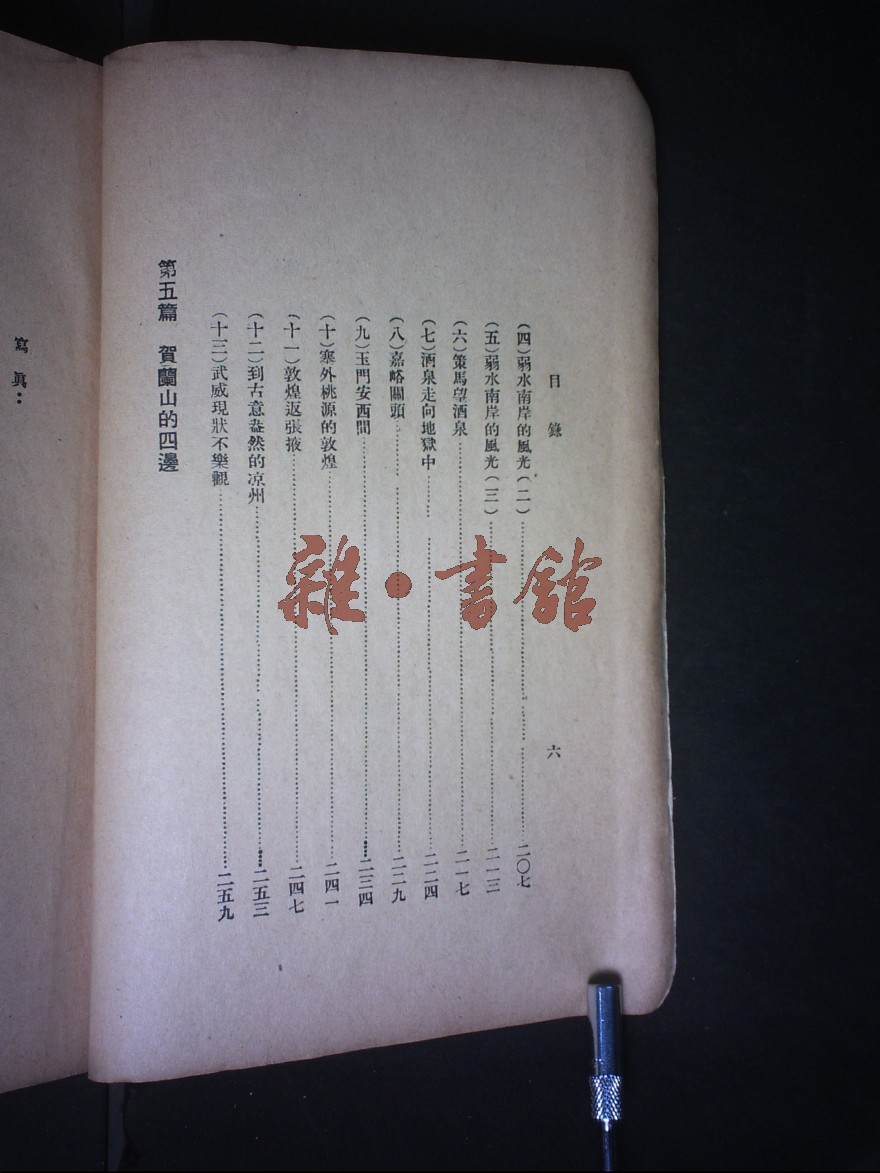 目錄 六
(四)弱水南岸的風光(二)……二〇七
(五)弱水南岸的風光(三)……二一三
(六)策馬望酒泉……二一七
(七)酒泉走向地獄中……二二四
(八)嘉峪關頭……二二九
(九)玉門安西間……二三四
(十)塞外桃源的敦煌……二四一
(十一)敦煌返張掖……二四七
(十二)到古意盎然的凉州……二五三
(十三)武威現狀不樂觀……二五九
第五篇 賀蘭山的四邊
寫真：
雜·書館